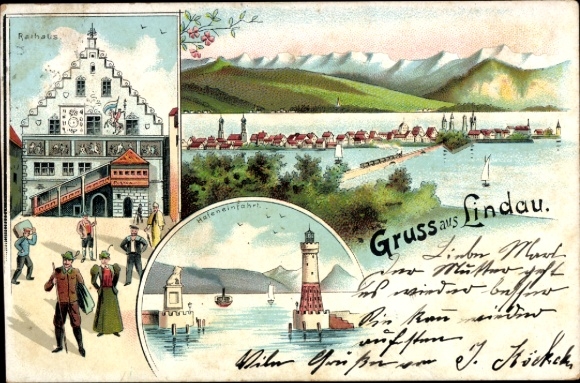 Rathaus.
Hafeneinfahrt.
Gruss aus Lindau.
Liebe
der Mutter geht
es wieder besser
Sie kann wieder
aufstehen
Viele Grüße von J.